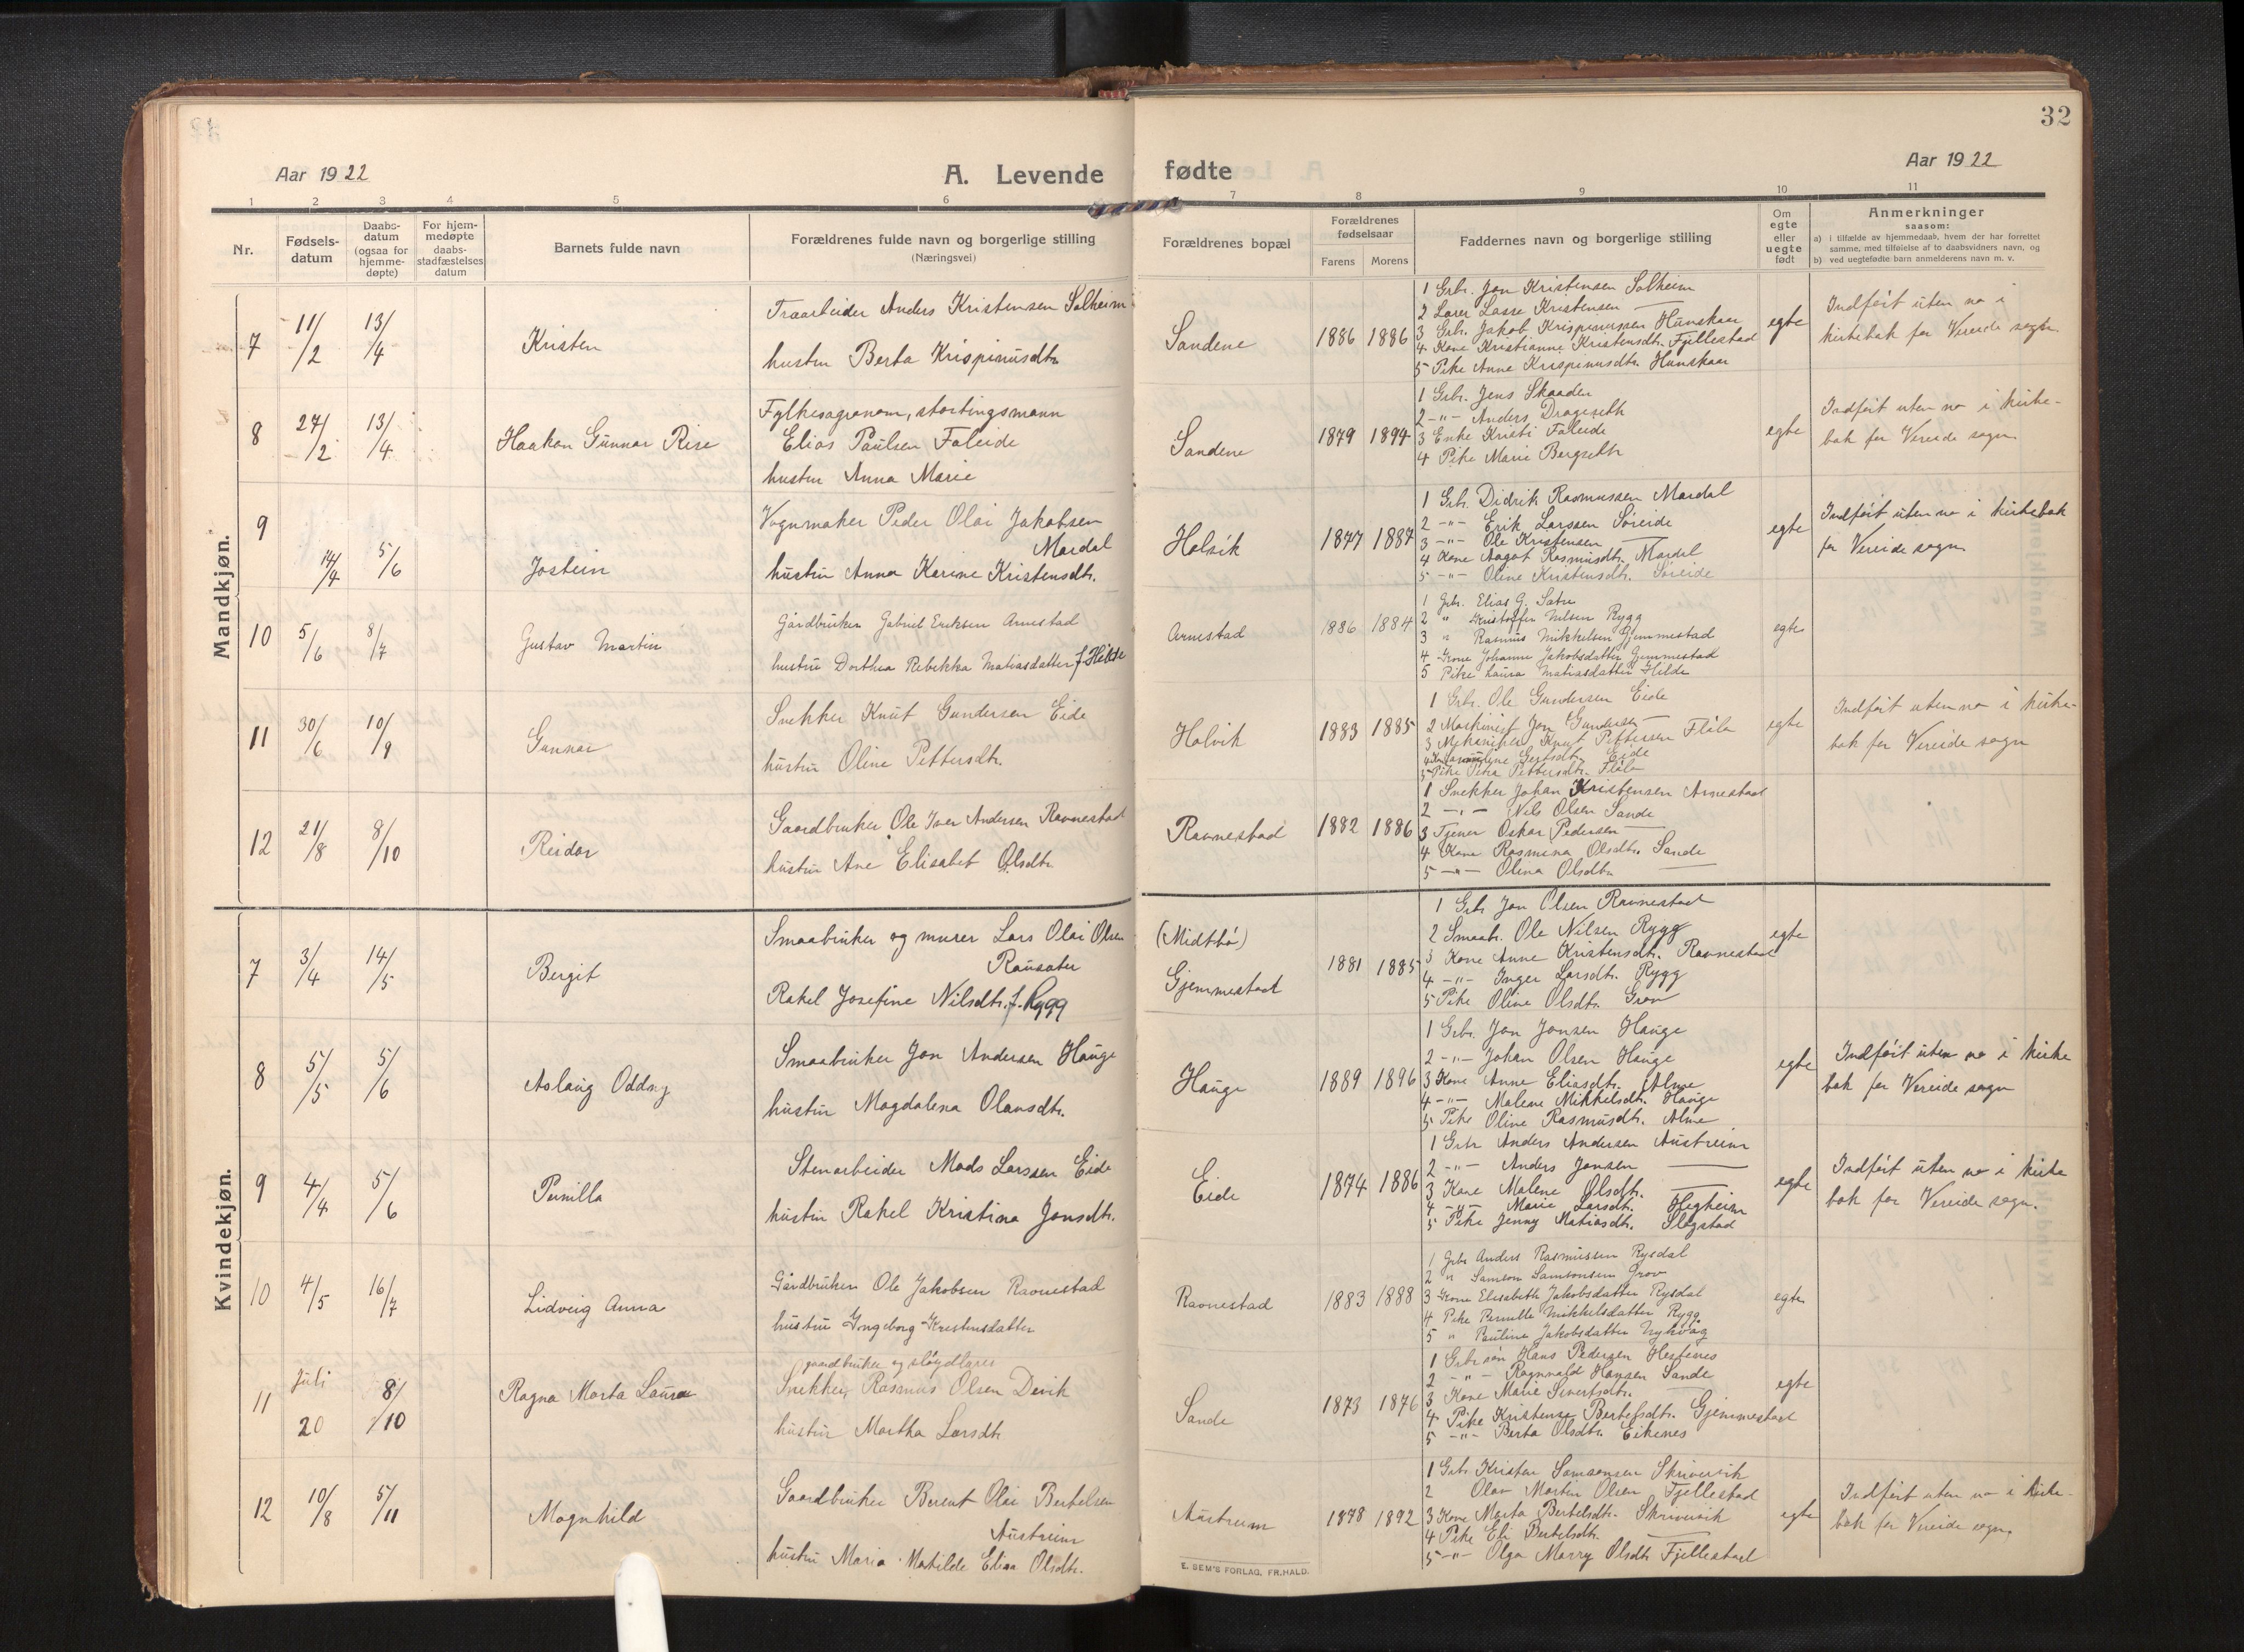 32
Aar 1922
A. Levende
fødte
Aar 1922
1 2 3 4 5 6 7 8 9 10 11
Nr.
Fødsels-
datum
Daabs-
datum
(ogsaa for
hjemme-
døpte)
For hjem-
medøpte
daabs-
stadfæstelses
datum
Barnets fulde navn
Forældrenes fulde navn og borgerlige stilling
(Næringsvei)
Forældrenes bopæl
Forældrenes
fødselsaar
Farens Morens
Faddernes navn og borgerlige stilling
Om
egte
eller
uegte
født
Anmerkninger
saasom:
a) i tilfælde av hjemmedaab, hvem der har forrettet
samme, med tilføielse af to daabsvidners navn, og
b) ved uegtefødte barn anmelderens navn m. v.
Mandkjøn.
7 11/2 13/4 Kristen
Træarbeider Anders Kristensen Solheim
hustru Berta Krispinusdtr.
Sandene 1886 1886
1 Grbr. Jon Kristensen Solheim
2 Lærer Lasse Kristensen —
3 Grbr. Jakob Krispinussen Hunskaar
4 Kone Kristianne Kristensdtr. Fjellestad
5 Pike Anne Krispinusdtr. Hunskaar
egte
Indført uten no i
kirkebok for Vereide sogn.
8 27/2 13/4 Haakon Gunnar Rise
Fylkesagronom, stortingsmann
Elias Paulsen Faleide
hustru Anna Marie
Sandene 1879 1894
1 Grbr. Jens Skaaden
2 -"- Anders Drageseth
3 Enke Kristi Faleide
4 Pike Marie Bergseth
egte
Indført uten no i kirke-
bok for Vereide sogn.
9 14/4 5/6 Jostein
Vognmaker Peder Olai Jakobsen
Mardal
hustru Anna Karine Kristensdtr.
Holvik 1877 1887
1 Grbr. Didrik Rasmussen Mardal
2 -"- Erik Larssen Søreide
3 -"- Ole Kristensen —
4 Kone Aagot Rasmusdtr. Mardal
5 -"- Oline Kristensdtr. Søreide
egte
Indført uten no i kirkebok
for Vereide sogn.
10 5/6 8/7 Gustav Martin
Gårdbruker Gabriel Eriksen Arnestad
hustru Dorthea Rebekka Matiasdatter f. Hilde
Arnestad 1886 1884
1 Gbr. Elias G. Sætre
2 " Kristoffer Nilsen Rygg
3 " Rasmus Mikkelsen Gjemmestad
4 Kone Johanne Jakobsdatter Gjemmestad
5 Pike Laura Matiasdatter Hilde
egte
11 30/6 10/9 Gunnar
Snekker Knut Gundersen Eide
hustru Oline Pettersdtr.
Holvik 1883 1885
1 Grbr. Ole Gundersen Eide
2 Maskinist Jon Gundersen —
3 Mekaniker Knut Pettersen Fløla
Eide
5 Pike Petra Pettersdtr. Fløla
egte
Indført uten no i kirke-
bok for Vereide sogn
12 21/8 8/10 Reidar
Gaardbruker Ole Iver Andersen Ravnestad
hustru Ane Elisabet Olsdtr.
Ravnestad 1882 1886
1 Snekker Johan Kristensen Arnestad
2 -"- Nils Olsen Sande
3 Tjener Oskar Pedersen —
4 Kone Rasmina Olsdtr. Sande
5 -"- Olina Olsdtr. —
Kvindekjøn.
7 3/4 14/5 Bergit
Smaabruker og murer Lars Olai Olsen
Rausæter
Rakel Josefine Nilsdtr. f. Rygg
(Midtbø)
Gjemmestad 1881 1885
1 Grbr Jon Olsen Ravnestad
2 Smaabr. Ole Nilsen Rygg
3 Kone Anne Kristensdtr. Ravnestad
4 -"- Inger Larsdtr. Rygg
5 Pike Oline Olsdtr. Grov
egte
8 5/5 5/6 Aslaug Oddny
Smaabruker Jon Andersen Hauge
hustru Magdalena Olavsdtr.
Hauge 1889 1896
1 Grbr. Jon Jonsen Hauge
2 -"- Johan Olsen Hauge
3 Kone Anne Eliasdtr. Alme
4 -"- Malene Mikkelsdtr. Hauge
5 Pike Oline Rasmusdtr. Alme
egte
Indført uten no i kirke
bok for Vereide sogn
9 4/4 5/6 Pernilla
Stenarbeider Mads Larssen Eide
hustru Rakel Kristina Jonsdtr.
Eide 1874 1886
1 Grbr Anders Andersen Austreim
2 -"- Anders Jonsen —
3 Kone Malene Olsdtr. —
4 -"- Marie Larsdtr. Hegheim
5 Pike Jenny Matiasdtr. Slogstad
egte
Indført uten no i kirke
bok for Vereide sogn.
10 4/5 16/7 Lidveig Anna
Gårdbruker Ole Jakobsen Ravnestad
hustru Ingeborg Kristensdatter
Ravnestad 1883 1888
1 Gbr Anders Rasmussen Rysdal
2 " Samson Samsonsen Grov
3 Kone Elisabeth Jakobsdatter Rysdal
4 Pike Pernille Mikkelsdatter Rygg
5 " Pauline Jakobsdatter Myhvåg
egte
11 Juli 20 8/10 Ragna Marta Laura
gaardbruker og sløydlærer
Snekker, Rasmus Olsen Devik
hustru Martha Larsdtr
Sande 1873 1876
1 Grbrsøn Hans Pedersen Hestenes
2 -"- Ragnvald Hansen Sande
3 Kone Marie Sivertsdtr. —
4 Pike Kristense Bertelsdtr. Gjemmestad
5 -"- Berta Olsdtr. Eikenes
egte
12 10/8 5/11 Magnhild
Gaardbruker Berent Olai Bertelsen
Austreim
hustru Maria Matilde Elisa Olsdtr.
Austreim 1878 1892
1 Grbr. Kristen Samsonsen Skrivervik
2 Olav Martin Olsen Fjellestad
3 Kone Marta Bertelsdtr. Skrivervik
4 Pike Eli Bertelsdtr. —
5 -"- Olga Marry Olsdtr Fjellestad
egte
Indført uten no i kirke-
bok for Vereide sogn.
E. SEM'S FORLAG, FR.HALD.